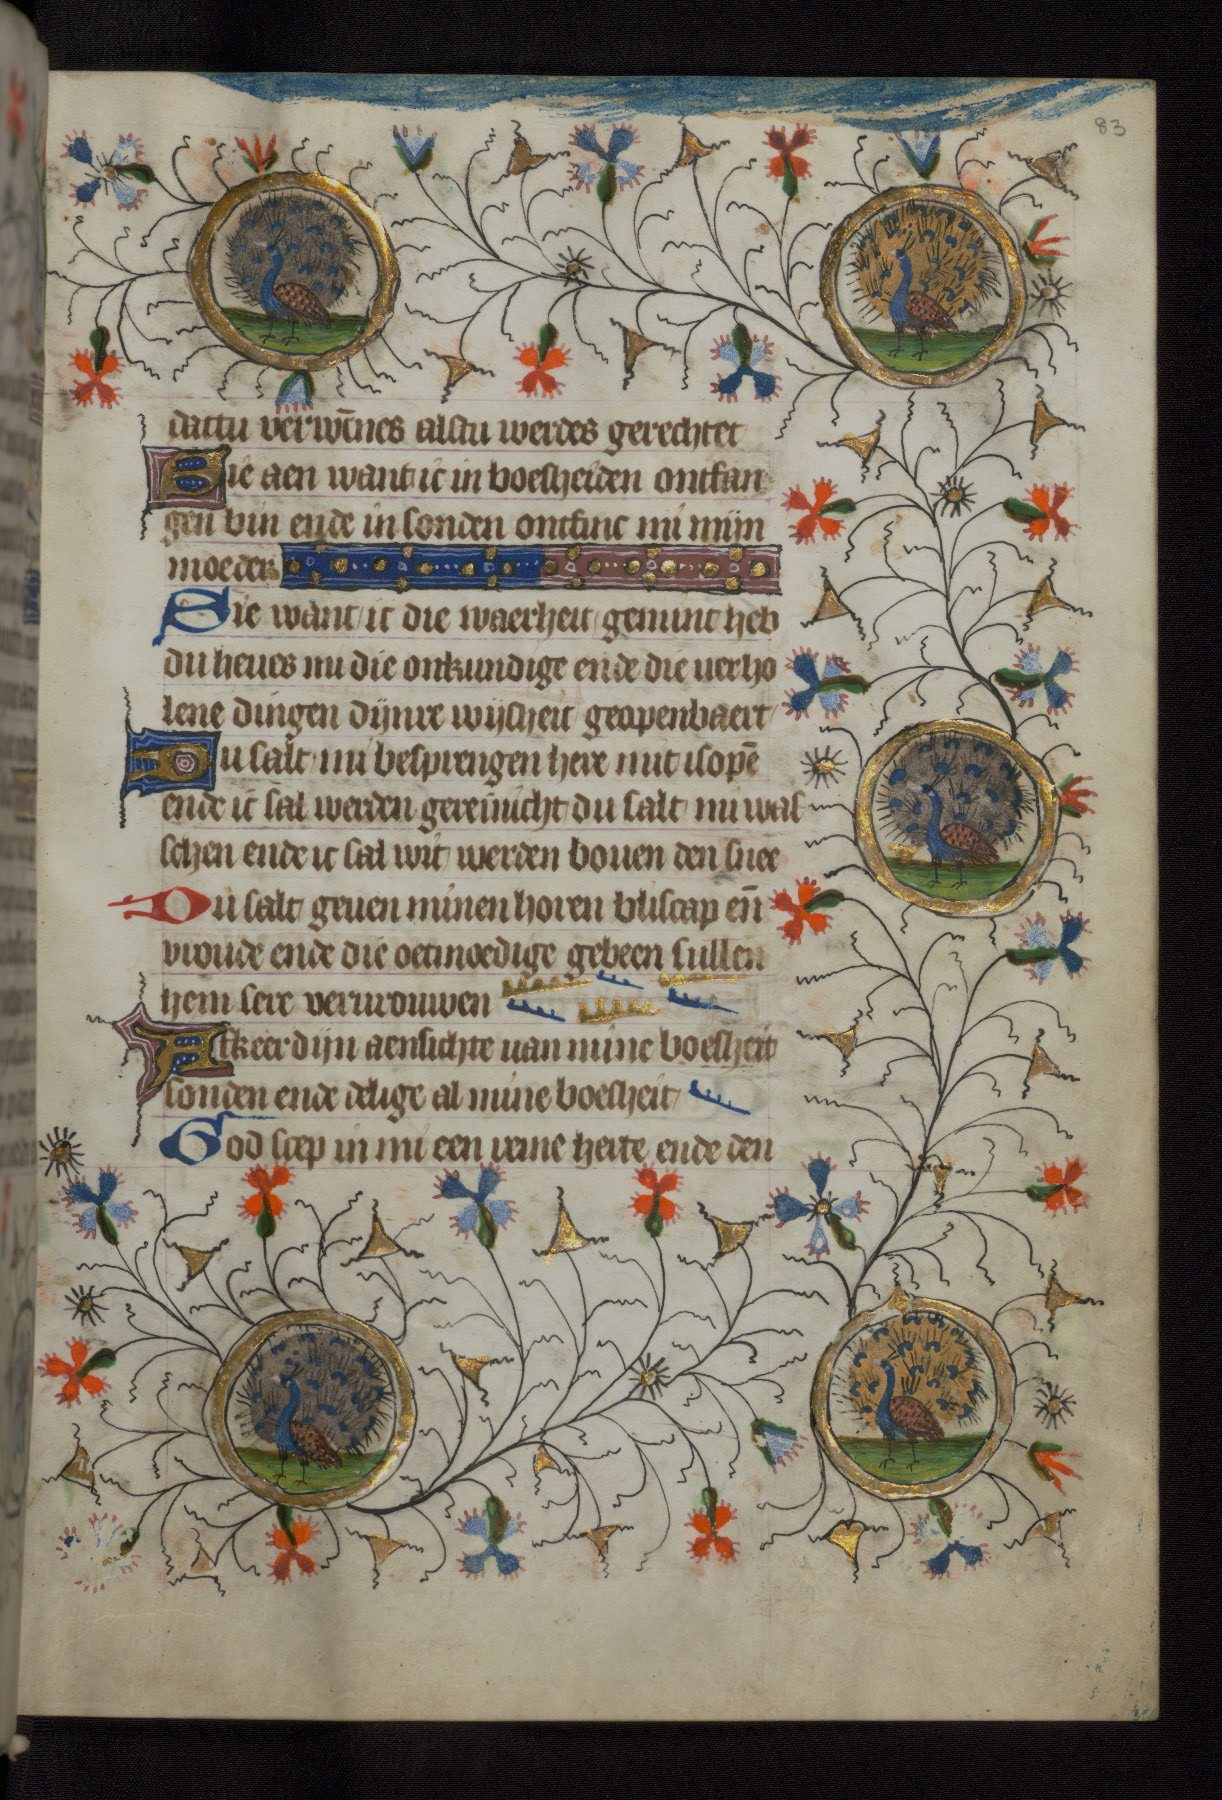 83
dattu verwīnes alstu werdes gerechtet
Sie aen want ic in boesheiden ontfan
gen bin ende in sonden ontfinc mi mijn
moeder
Sie want ic die waerheit gemint heb
du heues mi die onkundige ende die uerho
lene dingen dijnre wijsheit geopenbaert
Du salt mi besprengen here mit isopē
ende ic sal werden gereinicht du salt mi was
schen ende ic sal wit werden bouen den snee
Du salt geuen minen horen bliscap en̄
vroude ende die oetmoedige gebeen sullen
hem sere vervrouwen
Afkeer dijn aensichte uan mine boesheit
sonden ende delige al mine boesheit
God scep in mi een reine herte ende den